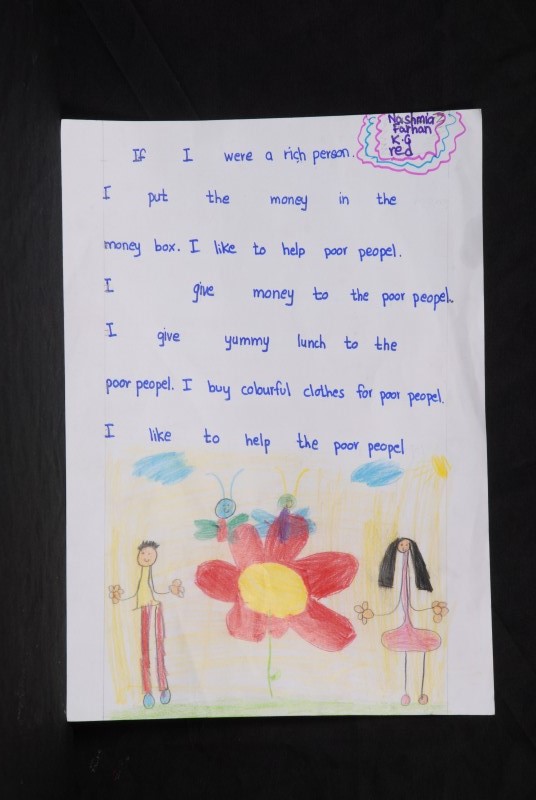 Nashmia
Farhan
K.G
red
If I were a rich person.
I put the money in the
money box. I like to help poor peopel.
I give money to the poor peopel.
I give yummy lunch to the
poor peopel. I buy colourful clothes for poor peopel.
I like to help the poor peopel